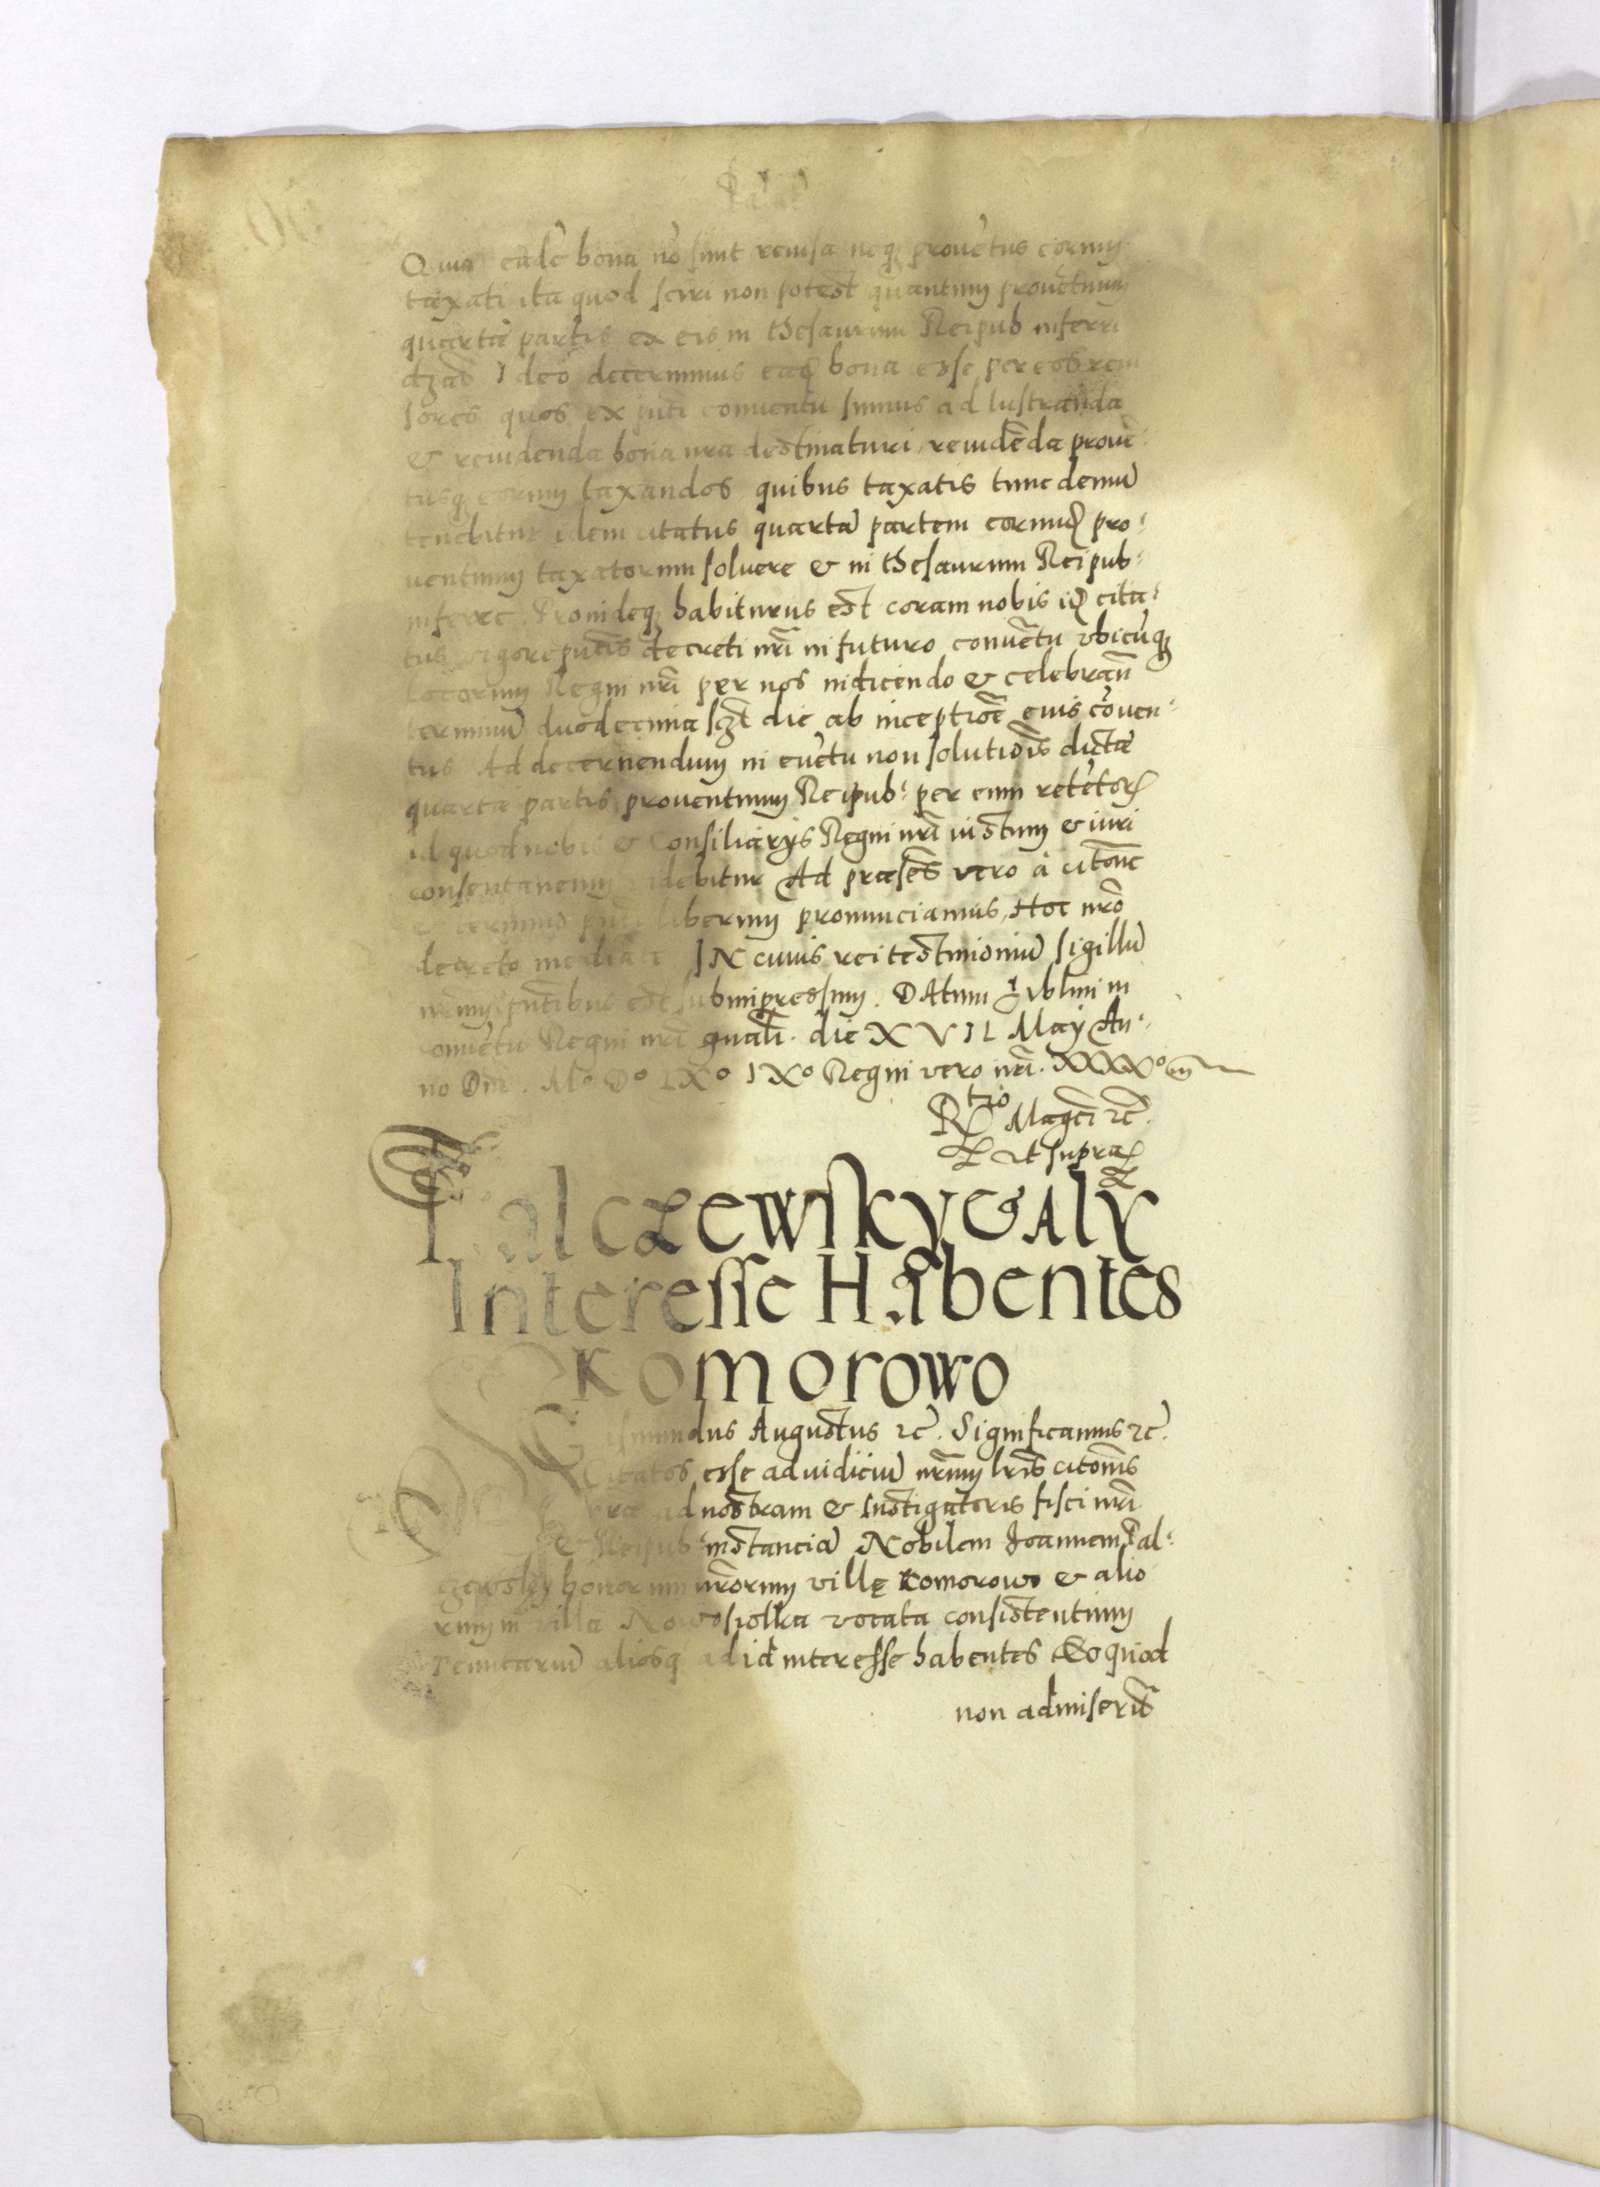 Quia eadē bona nō sunt revisa neq₃ proventus eorum
taxati ita quod sciri non potest quantum proventuum
quartæ partis ex eis in thesaurum Reipub inferri
Ideo decernimus bona esse per eos revi
sores quos ex conventu sumus ad lustranda
& revidenda bona nra destinaturi, revidēda prove
tusq₃ eorum taxandos quibus taxatis tunc demū
tenebitur idem citatus quartā partem eorund pro-
ventuum taxatorum solvere & in thesaurum Reipub:
inferre. Proindeq₃ habiturus est coram nobis id cita-
tus vigore decreti nrī in futuro convētu ubicūq₃
locorum Regni nrī per nos indicendo & celebran
terminū duodecima die ab inceptiōe euis cōven-
tus Ad decernendum in evētu non solutiōis dictæ
quartæ partis proventuum Reipub: per eum retētor
id quod nobis & Consiliarys Regni nrī iustum & iuri
consentaneum videbitur Ad præsēs vero à citōne
& termino liberum pronunciamus, Hoc nrō
decreto mediāte IN cuius rei testimoniū sigillū
nrum est subimpressum. DAtum Lublini in
convētu Regni nrī die XVII May An-
no Dni. Mº Dº LXº IXº Regni vero nrī. XXXXº
Rtio Magci rc̄.
ut supra
Palczewsky & Aly
Interesse HAbentes
Komorowo
Sigismundus Augustus rc̄. Significamus rc̄.
Citatos esse ad iudiciū nrum lrīs citōnis
nrae ad nostram & Instigatoris fisci nrī
& Reipub: instanciā Nobilem Joannem Pal-
czewsky bonorum nrōrum villę Komorowo & alio
rum in villa Novosiolka vocata consistentium
Tenutariū aliosq₃ ad id interesse habentes Eo quod
non admiserīt